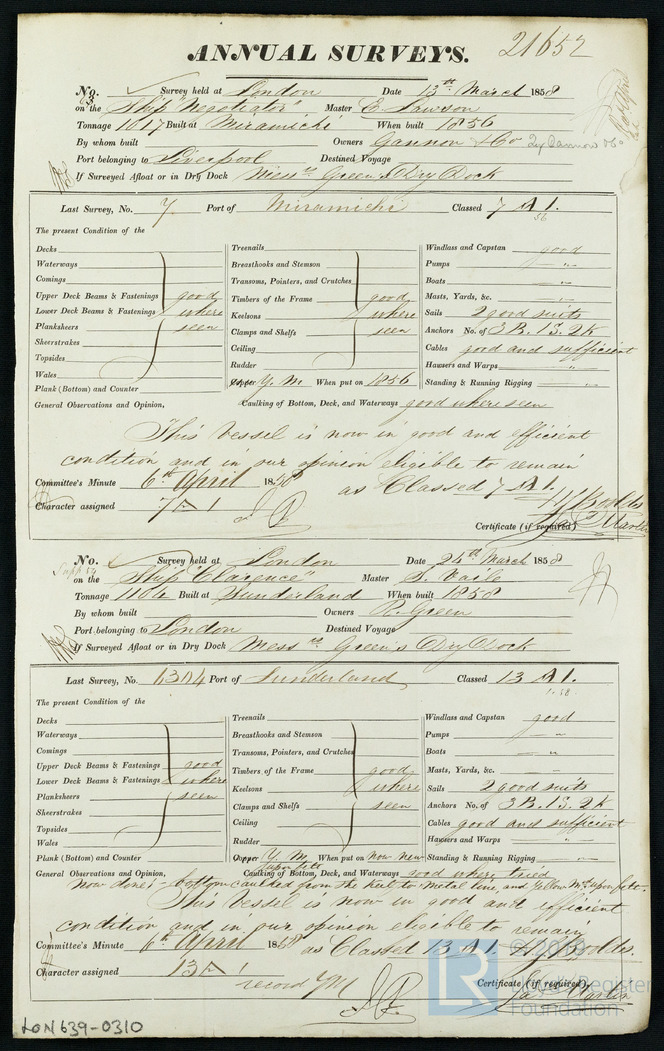 ANNUAL SURVEYS. 21652
No. 63 Survey held at London Date 13th March 1858
on the Ship "Negotiator" Master E. Lawson
Tonnage 1017 Built at Miramichi When built 1856
By whom built Owners Gannon & Co
Port belonging to Liverpool Destined Voyage
If Surveyed Afloat or in Dry Dock Messrs Green's Dry Dock
Last Survey, No. 7 Port of Miramichi Classed 7 A 1.
56
The present Condition of the
Decks Treenails Windlass and Capstan good
Waterways Breasthooks and Stemson Pumps "
Comings Transoms, Pointers, and Crutches Boats "
Upper Deck Beams & Fastenings good Timbers of the Frame good Masts, Yards, &c. "
Lower Deck Beams & Fastenings where Keelsons where Sails 2 good suits
Planksheers seen Clamps and Shelfs seen Anchors No. of 3B. 1S. 2K
Sheerstrakes Ceiling Cables good and sufficient
Topsides Rudder Hawsers and Warps "
Wales Copper Y. M. When put on 1856 Standing & Running Rigging "
Plank (Bottom) and Counter
General Observations and Opinion, Caulking of Bottom, Deck, and Waterways good where seen
This Vessel is now in good and efficient
condition and in our opinion eligible to remain
as Classed 7 A 1.
Committee's Minute 6th April 1858
Character assigned 7 A 1
Certificate (if required) Martin
No. Survey held at London Date 24th March 1858
on the Ship "Clarence" Master S. Vaile
Tonnage 1104 Built at Sunderland When built 1858
By whom built Owners R. Green
Port belonging to London Destined Voyage
If Surveyed Afloat or in Dry Dock Messrs Green's Dry Dock
Last Survey, No. Port of Sunderland Classed 13 A 1.
1.58
The present Condition of the
Decks Treenails Windlass and Capstan good
Waterways Breasthooks and Stemson Pumps "
Comings Transoms, Pointers, and Crutches Boats "
Upper Deck Beams & Fastenings good Timbers of the Frame good Masts, Yards, &c. "
Lower Deck Beams & Fastenings where Keelsons where Sails 2 good suits
Planksheers seen Clamps and Shelfs seen Anchors No. of 3B. 1S. 2K
Sheerstrakes Ceiling Cables good and sufficient
Topsides Rudder Hawsers and Warps "
Wales Copper Y. M. upon felt When put on now new Standing & Running Rigging "
Plank (Bottom) and Counter
General Observations and Opinion, Caulking of Bottom, Deck, and Waterways good where tried
now done:- bottom caulked from the keel to metal line, and Yellow Md upon felt.
This Vessel is now in good and efficient
condition and in our opinion eligible to remain
as Classed 13 A 1.
Committee's Minute 6th April 1858
Character assigned 13 A 1
record YM
Certificate (if required) Jas Martin
LR Lloyd's Register Foundation
LON639-0310